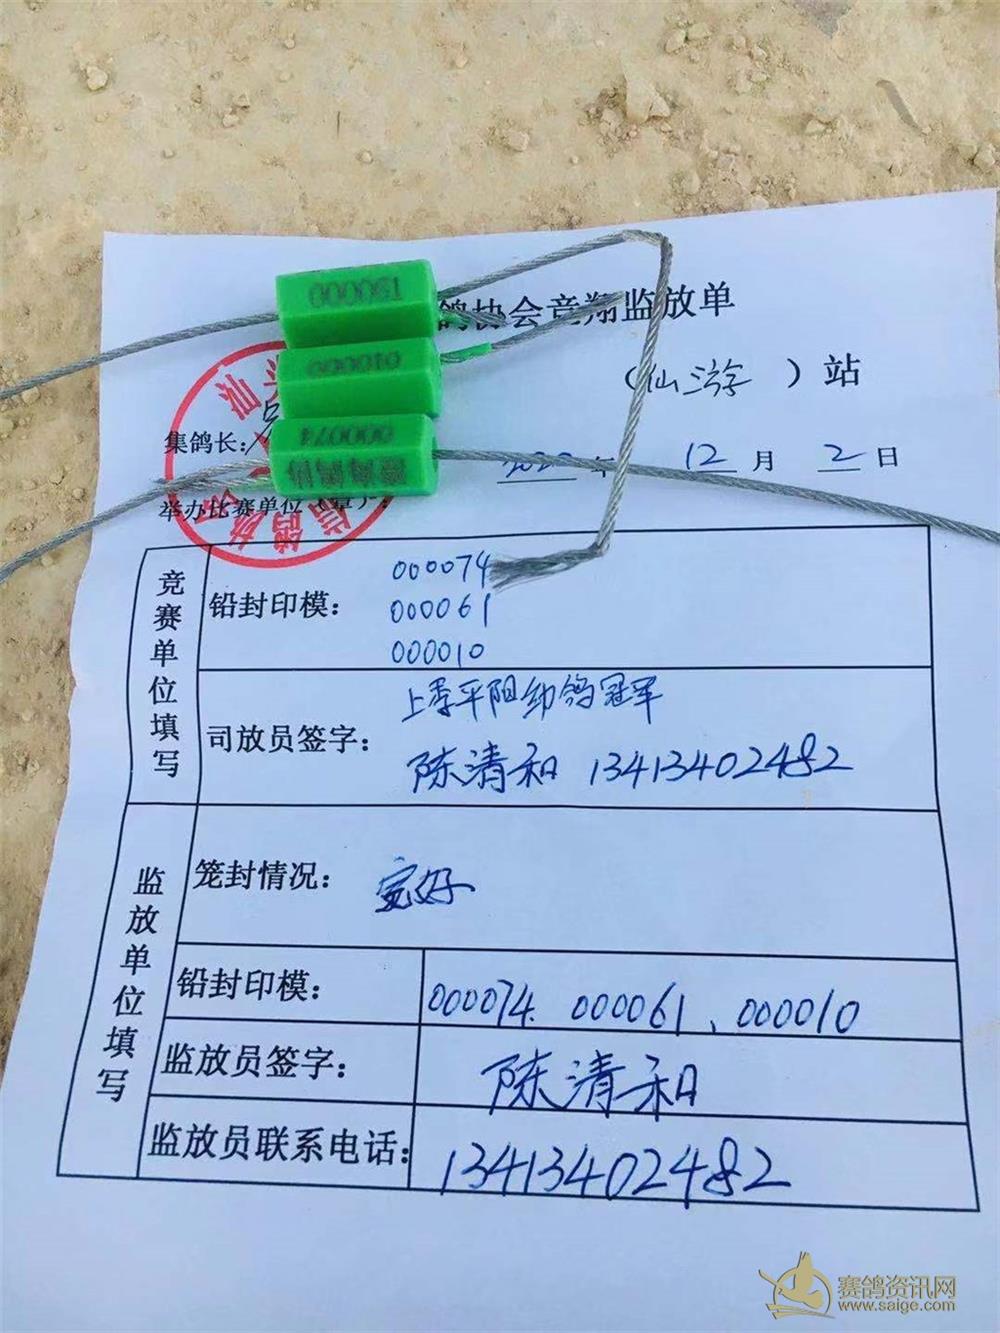 鸽协会竞翔监放单
（仙游 ）站
集鸽长：
2022 年 12 月 2 日
举办比赛单位（章）：
000010
000074
澄海鸽协
竞赛单位填写
铅封印模：
000074
000061
000010
司放员签字：
上季平阳幼鸽冠军
陈清和 13413402482
监放单位填写
笼封情况：
完好
铅封印模：
000074、000061、000010
监放员签字：
陈清和
监放员联系电话：
13413402482
赛鸽资讯网
www.saige.com